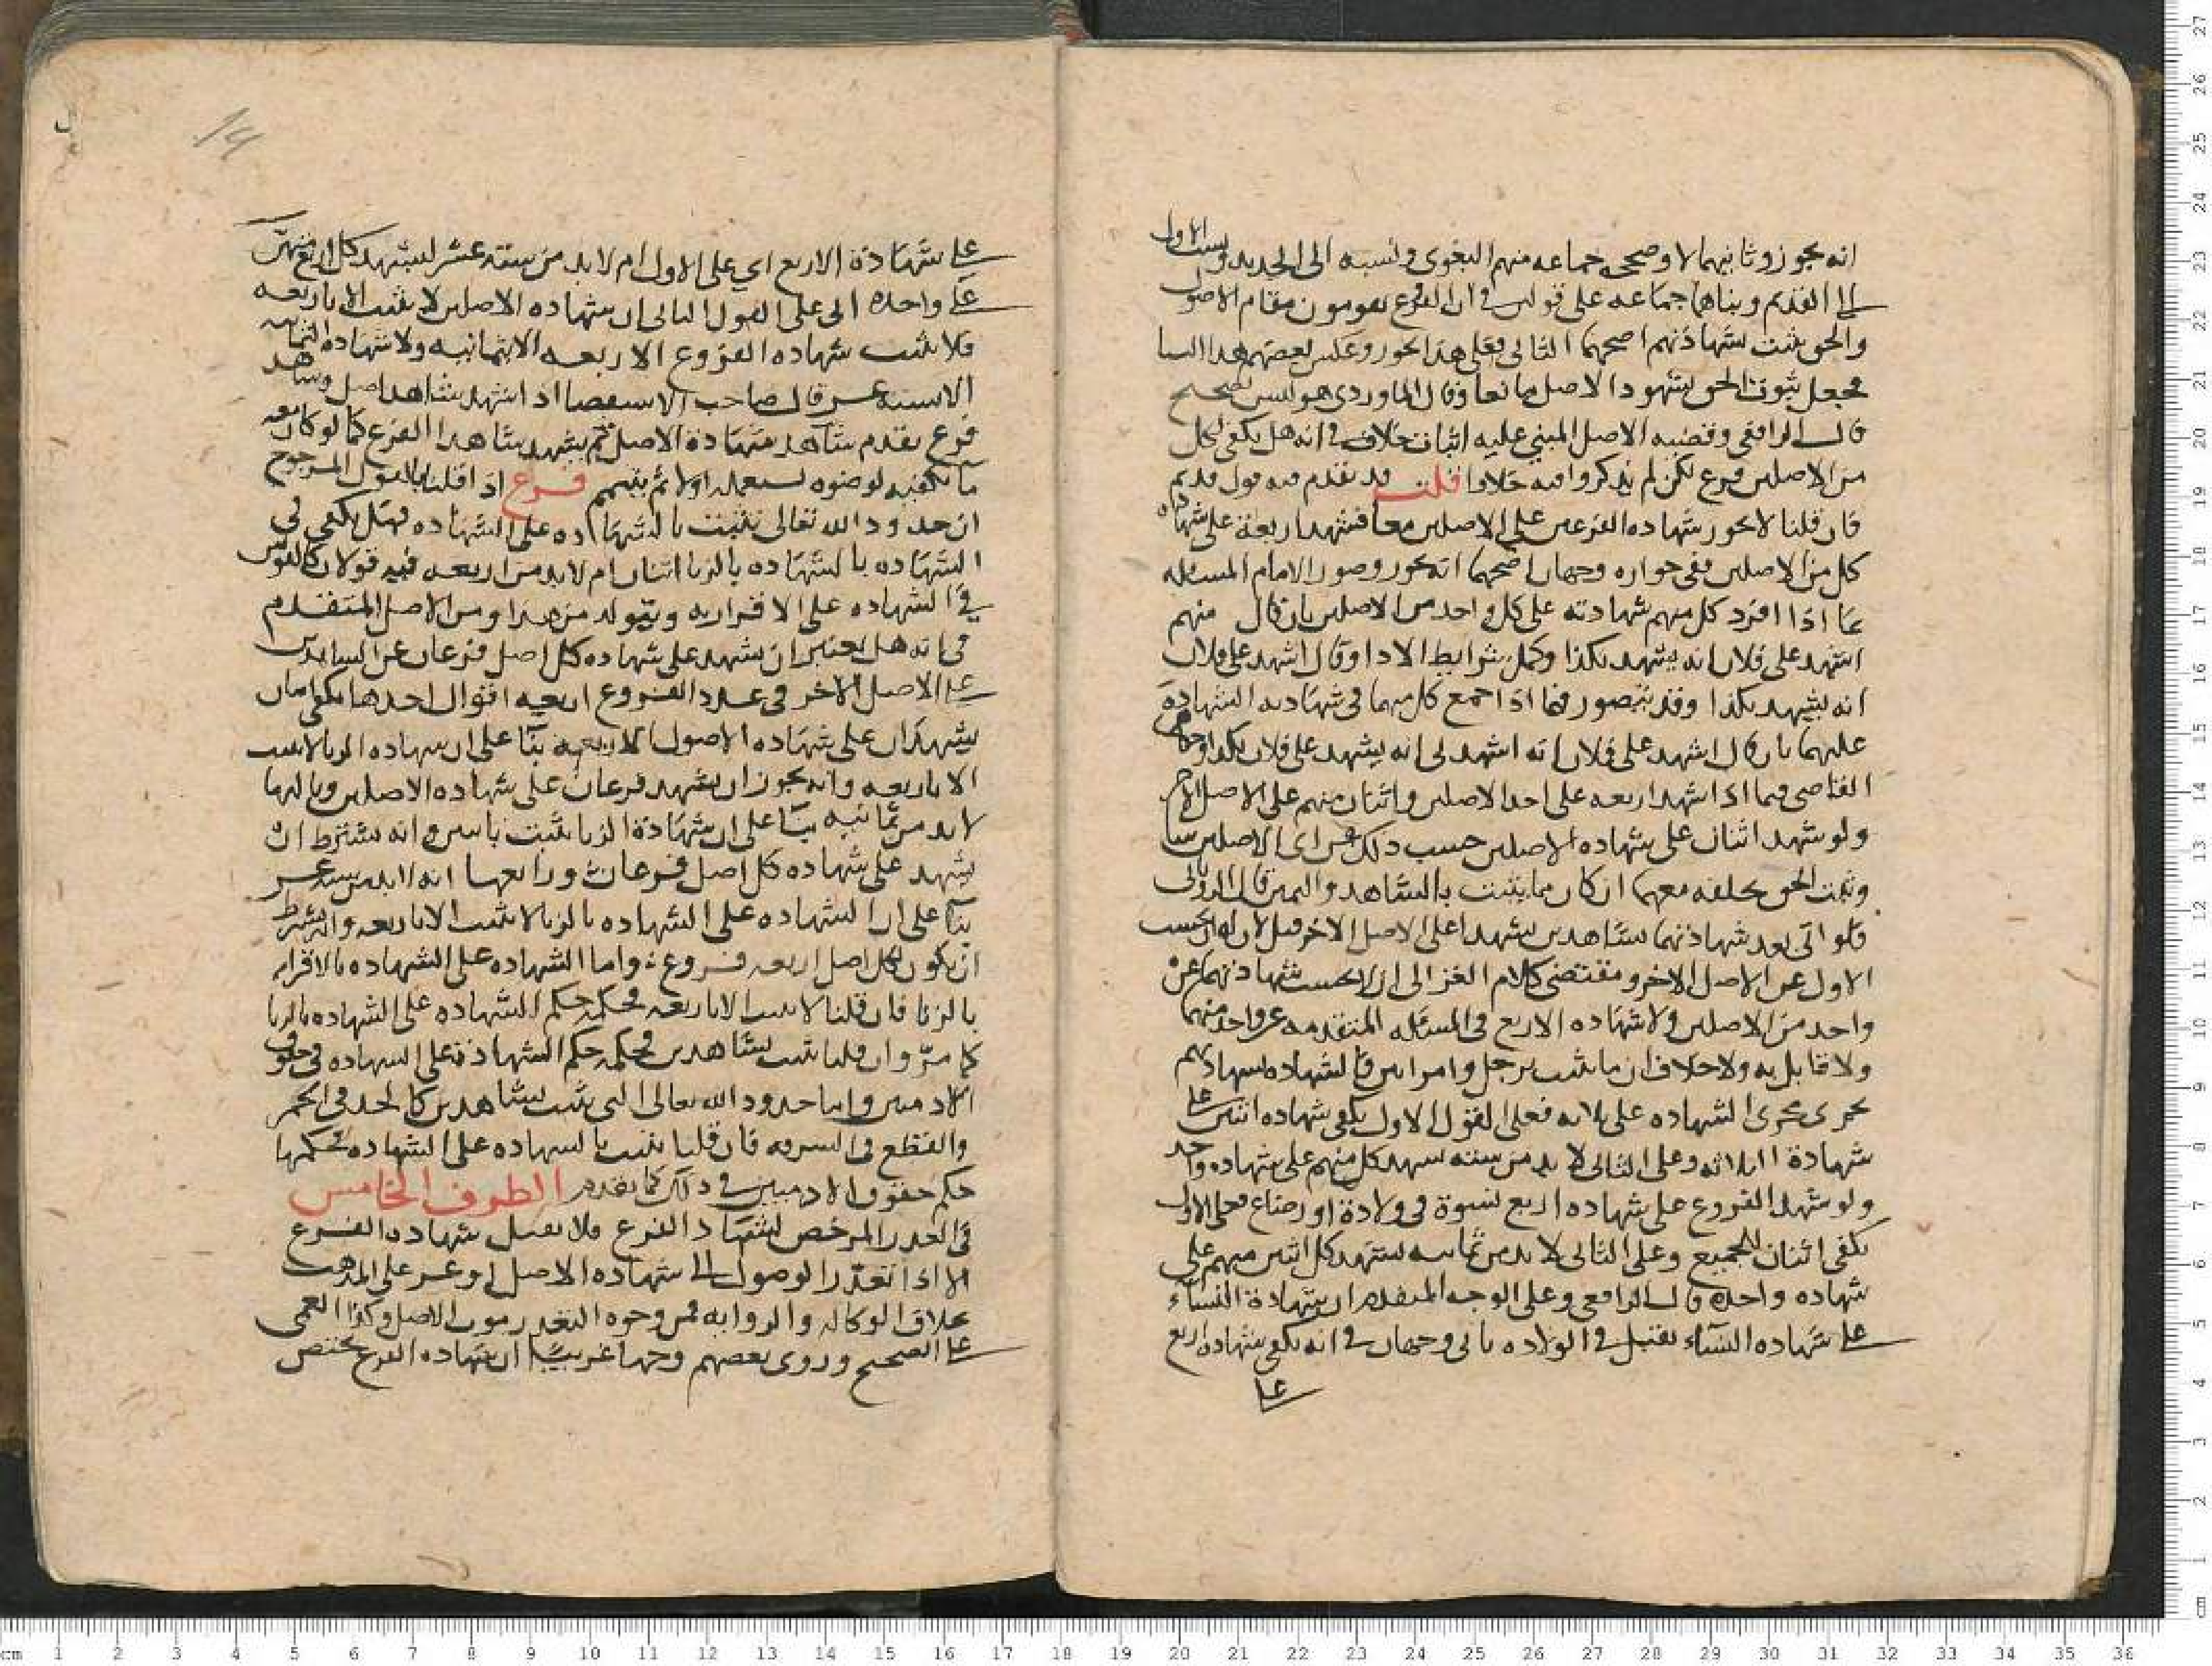 انه يجوز وثانيهما لا وصححه جماعه منهم البغوي ونسبه الى الجديد ونسب الاول
الى القديم وبناهما جماعه على قولين في ان الفرع يقومون مقام الاصول
والحق يثبت بشهادتهم اصحهما الثاني فعلى هذا يجوز وعكس بعضهم هذا البنا
فجعل ثبوت الحق بشهود الاصل مانعا وقال الماوردي هو ليس بصحيح
قال الرافعي وقضيه الاصل المبني عليه اثبات خلاف في انه هل يكفي لكل
من الاصلين فرع لكن لم يذكروا فيه خلافا قلت قد تقدم فيه قول قديم
فان قلنا لا يجوز شهاده الفرعين على الاصلين معا فشهد اربعة على شهاده
كل من الاصلين ففي جوازه وجهان اصحهما انه يجوز وصور الامام المسئله
بما اذا افرد كل منهم شهادته على كل واحد من الاصلين بان قال منهم
اشهد على فلان انه يشهد بكذا وكمل شرايط الادا وقال اشهد على فلان
انه يشهد بكذا وقد يتصور فيما اذا جمع كل منهما في شهادته الشهادة
عليهما بان قال اشهد على فلان انه اشهدني انه يشهد على فلان بكذا
القاضي فيما اذا شهد اربعه على احد الاصلين واثنان منهم على الاصل الاخر
ولو شهد اثنان على شهاده الاصلين حسب ذلك عن اي الاصلين شا
وثبت الحق بحلفه معهما ان كان مما يثبت بالشاهد واليمين قال
فلو اتى بعد شهادتهما بشاهدين يشهدا على الاصل الاخر قبل لان له ان يحسب
الاول عن الاصل الاخر ومقتضى كلام الغزالي ان لا يحسب شهادتهم عن
واحد من الاصلين ولا شهاده الاربع في المسئله المتقدمه عن واحد منهما
ولا قابل به ولا خلاف ان ما يثبت برجل وامراتين فالشهاده بشهادتهم
يجري مجرى الشهاده على ثلاثه فعلى القول الاول يكفي شهاده اثنين على
شهادة الثلاثه وعلى الثاني لا بد من سته يشهد كل منهم على شهاده واحد
ولو شهد الفروع على شهاده اربع نسوة في ولادة او رضاع فعلى الاول
يكفي اثنان للجميع وعلى الثاني لا بد من ثمانيه يشهد كل اثنين منهم على
شهاده واحده قال الرافعي وعلى الوجه المتقدم ان شهادة النساء
على شهاده النساء يقبل في الولاده ياتي وجهان في انه يكفي شهاده اربع
على
على شهادة الاربع اي على الاول ام لا بد من ستة عشر ليشهد كل اربع منهن
على واحده اي على القول الثاني ان شهاده الاصلين لا يثبت الا باربعه
فلا يثبت شهاده الفروع الاربعه الا بثمانيه ولا شهاده الثمانيه
الا بستة عشر قال صاحب الاستقصا اذا شهد شاهد اصل وشاهد
فرع يقدم شاهد شهادة الاصل ثم يشهد شاهدا الفرع كما لو كان معه
ما يكفيه لوضوه يستعمله اولا ثم يتيمم فرع اذا قلنا بالقول المرجوح
ان حدود الله تعالى يثبت بالشهاده على الشهاده فهل يكفي في
الشهاده بالشهاده بالزنا اثنان ام لا بد من اربعه فيه قولان كالقولين
في الشهاده على الاقرار به ويتولد من هذا ومن الاصل المتقدم
في انه هل يعتبر ان يشهد على شهاده كل اصل فرعان غير
على الاصل الاخر في عدد الفروع اربعه اقوال احدها يكفي اثنان
يشهدان على شهاده الاصول الاربعه بنا على ان شهاده الزنا لا يثبت
الا باربعه وانه يجوز ان يشهد فرعان على شهاده الاصلين وثالثها
لا بد من ثمانيه بنا على ان شهادة الزنا يثبت باثنين وانه يشترط ان
يشهد على شهاده كل اصل فرعان ورابعها انه لا بد من ستة عشر
بنا على ان الشهاده على الشهاده بالزنا لا يثبت الا باربعه وانه يشترط
ان يكون لكل اصل اربعه فروع واما الشهاده على الشهاده بالاقرار
بالزنا فان قلنا لا يثبت الا باربعه فحكمه حكم الشهاده على الشهاده بالزنا
كما مر وان قلنا يثبت بشاهدين فحكمه حكم الشهادة على الشهاده في حقوق
الادميين واما حدود الله تعالى التي يثبت بشاهدين كالحد في الخمر
والقطع في السرقه فان قلنا يثبت بالشهاده على الشهاده فحكمها
حكم حقوق الادميين في ذلك كما تقدم الطرف الخامس
في العذر المرخص لشهاد الفرع فلا يقبل شهاده الفرع
الا اذا تعذر الوصول الى شهاده الاصل او عسر على المذهب
بخلاف الوكاله والروايه فمن وجوه التعذر موت الاصل وكذا العمى
على الصحيح وروى بعضهم وجها غريبا ان شهاده الفرع يختص